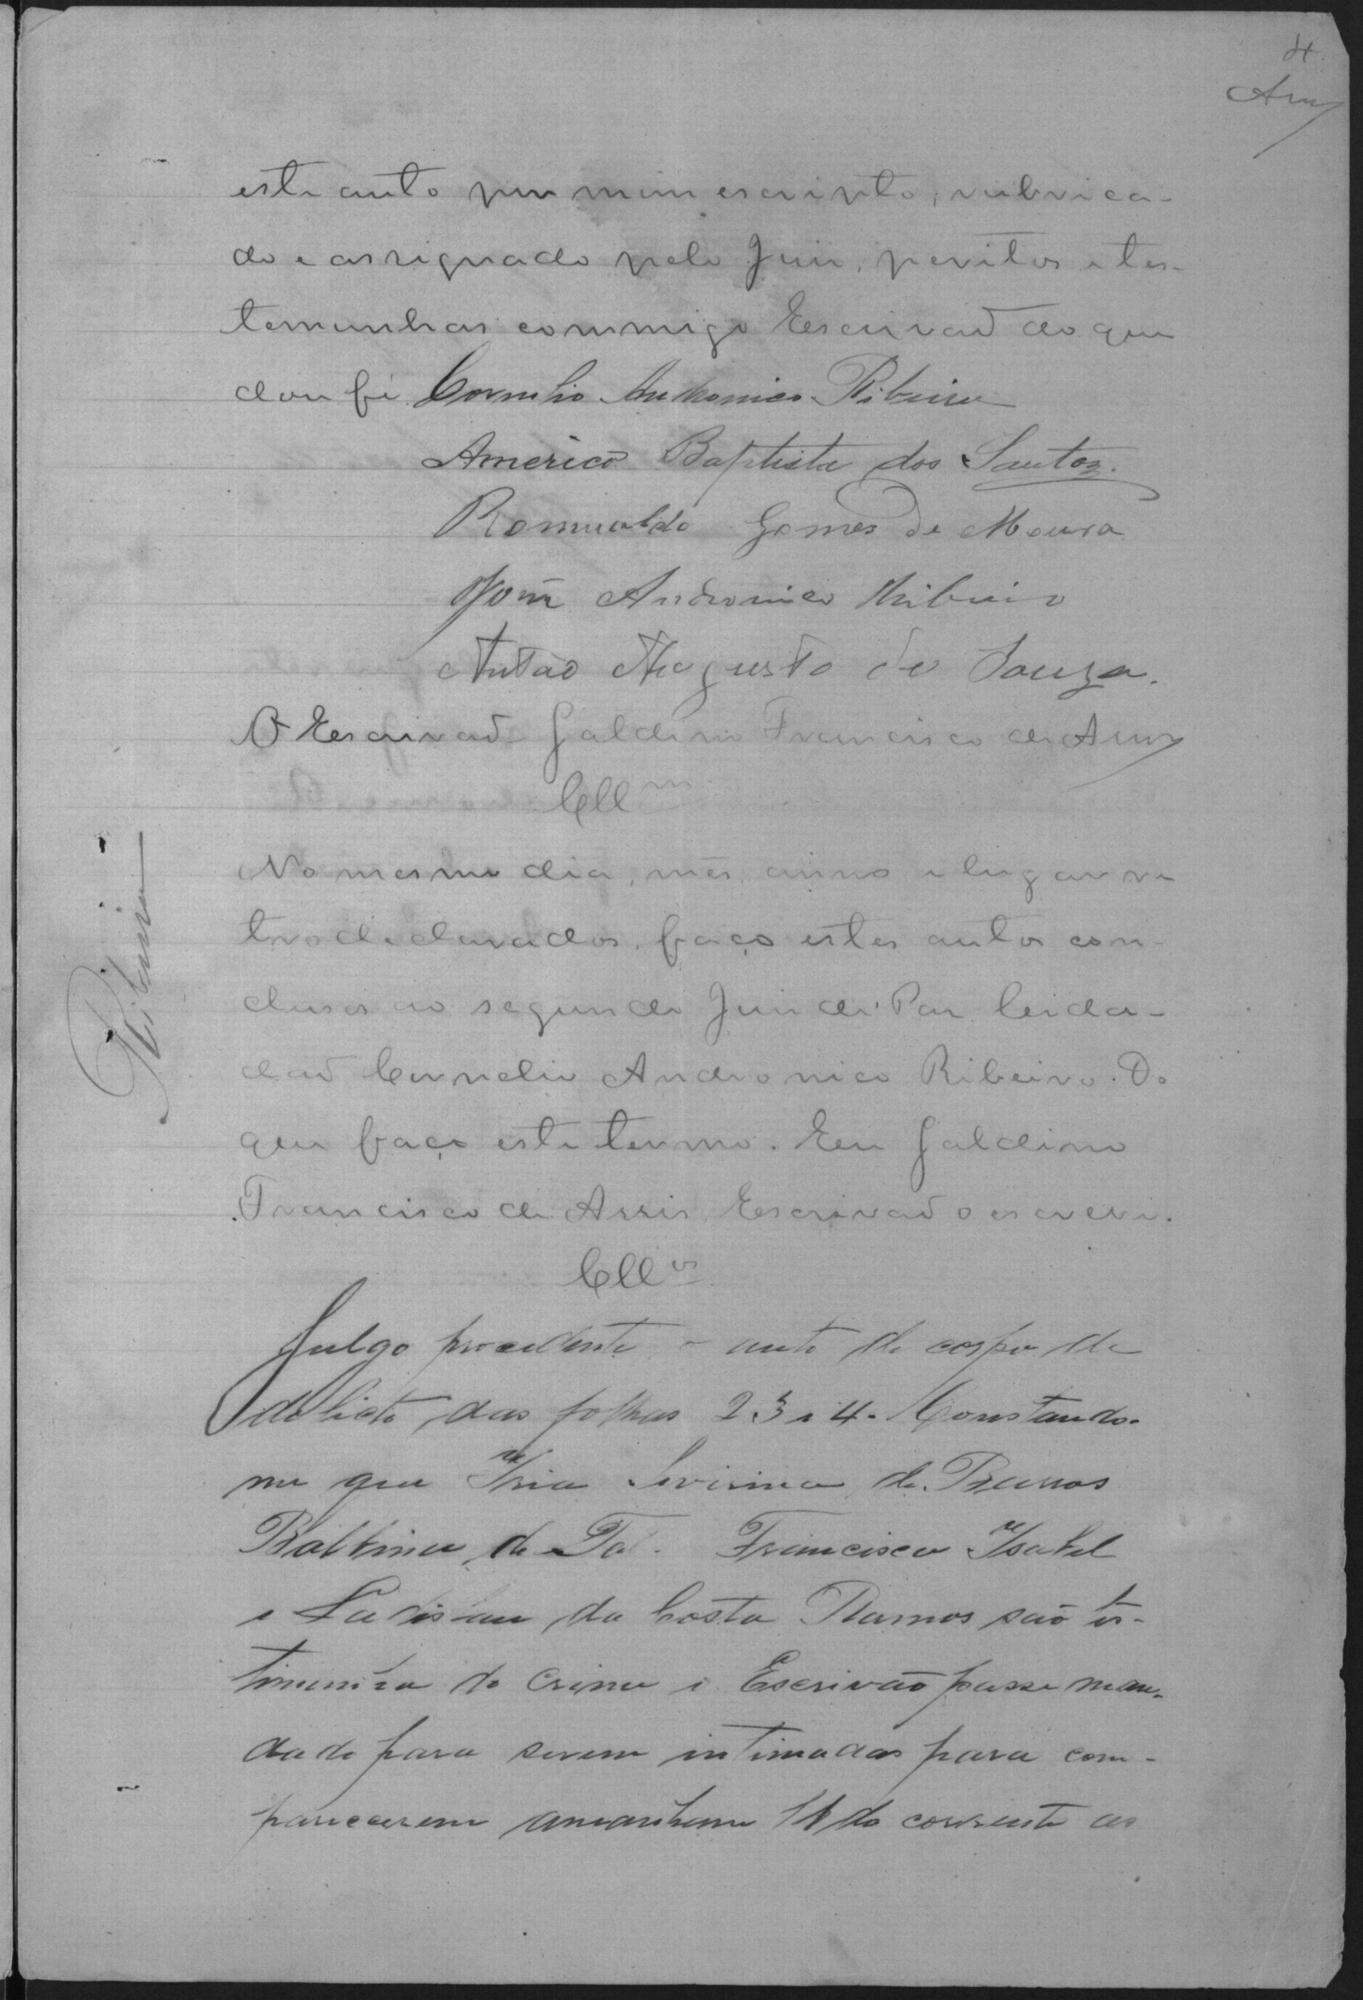 4
Assis
este auto por mim escripto, rubrica-
do e assignado pelo Juiz, peritos e tes-
temunhas commigo Escrivaõ do que
dou fé. Cornelio Andronico Ribeiro
Americo Baptista dos Santos.
Romualdo Gomes de Moura
José Andronico Ribeiro
Antão Augusto de Souza.
O Escrivaõ Galdino Francisco de Assis
Cllm
No mesmo dia, mes, anno e lugar re
tro declarados, faço estes autos con-
clusos ao segundo Juiz de Paz Cida-
daõ Cornelio Andronico Ribeiro. Do
que faço este termo. Eu Galdino
Francisco de Assis, Escrivaõ o escrevi.
Cllos
Ribeiro
Julgo procedente o auto de corpo de
delicto das folhas 2 3 e 4. Constando-
me que Iria Severina de Barros
Balbina de Tal. Francisca Isabel
e Ladislau da Costa Ramos são tes-
timunha do crime o Escrivão passe man-
dado para serem intimadas para com-
parecerem amanham 11 do corrente as